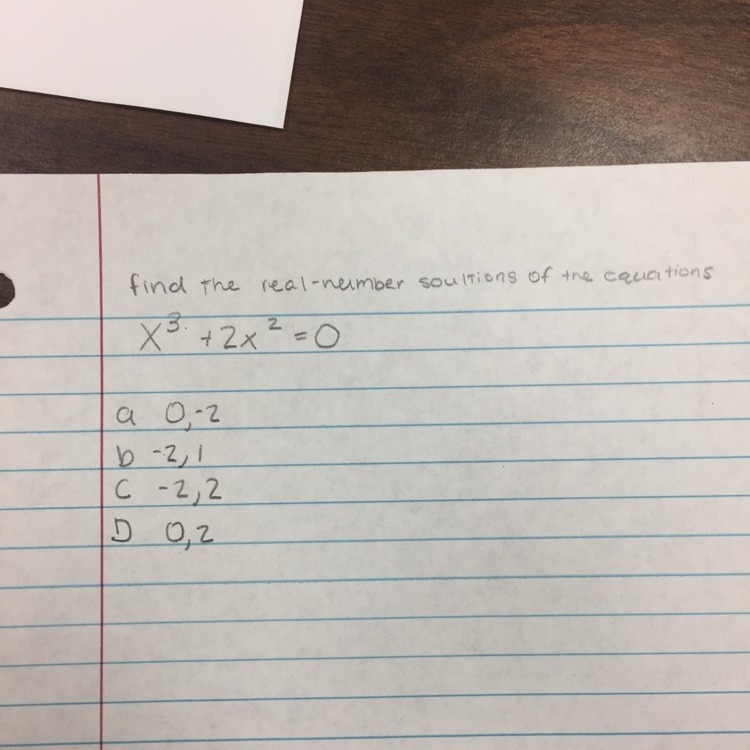 find the real-number soultions of the equations
X³ + 2x² = 0
a 0,-2
b -2,1
C -2,2
D 0,2